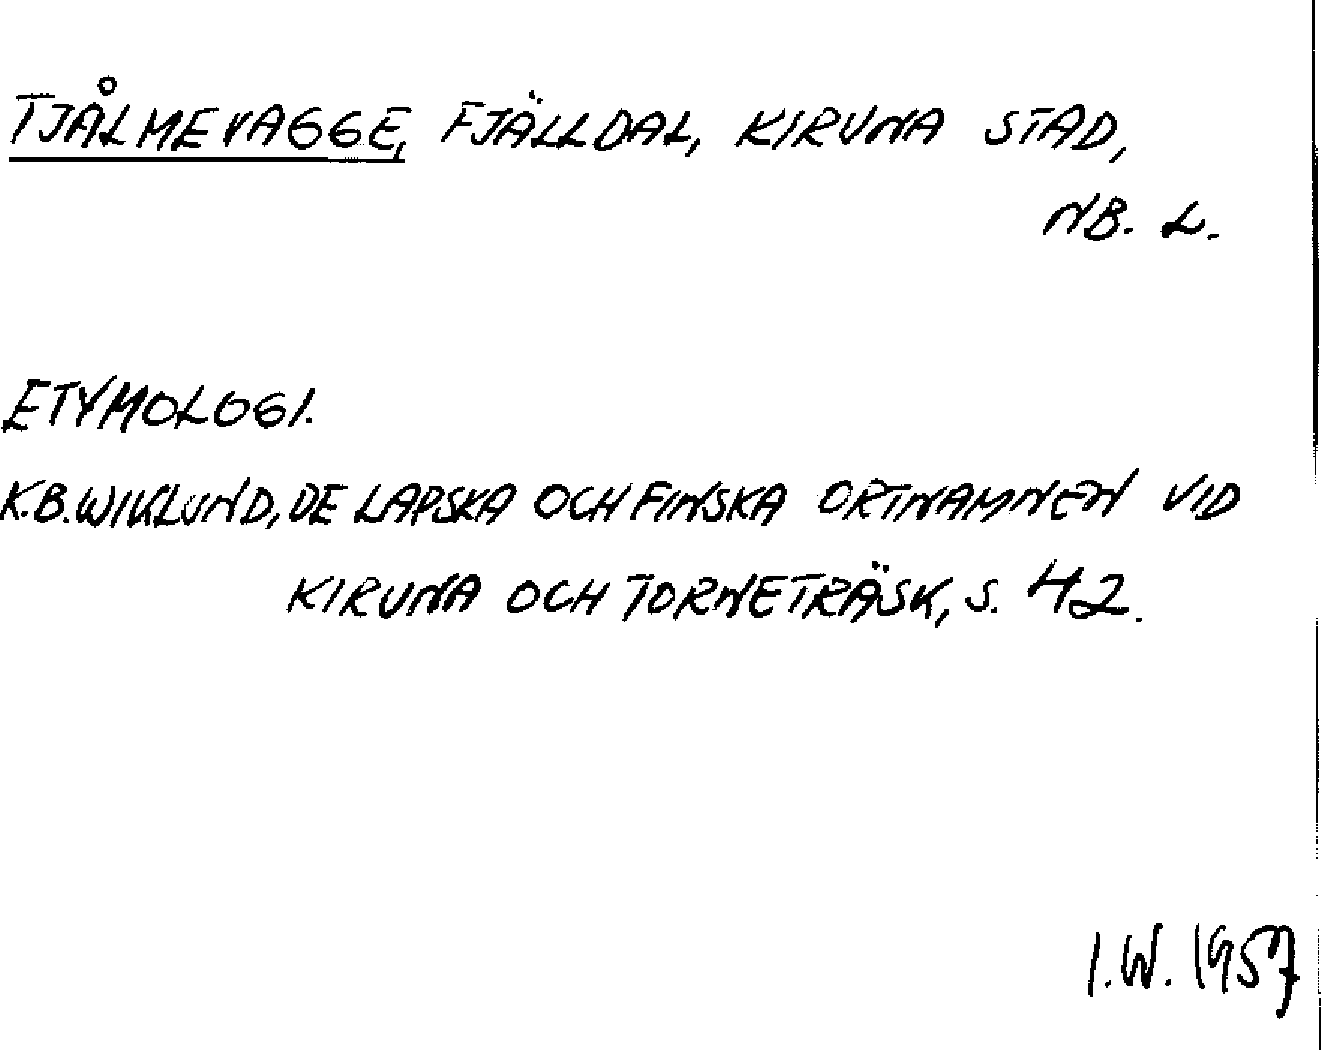 TJÅLMEVAGGE, FJÄLLDAL, KIRUNA STAD,
NB. L.
ETYMOLOGI.
K.B. WIKLUND, DE LAPSKA OCH FINSKA ORTNAMNEN VID
KIRUNA OCH TORNETRÄSK, S. 42.
I.W. 1957